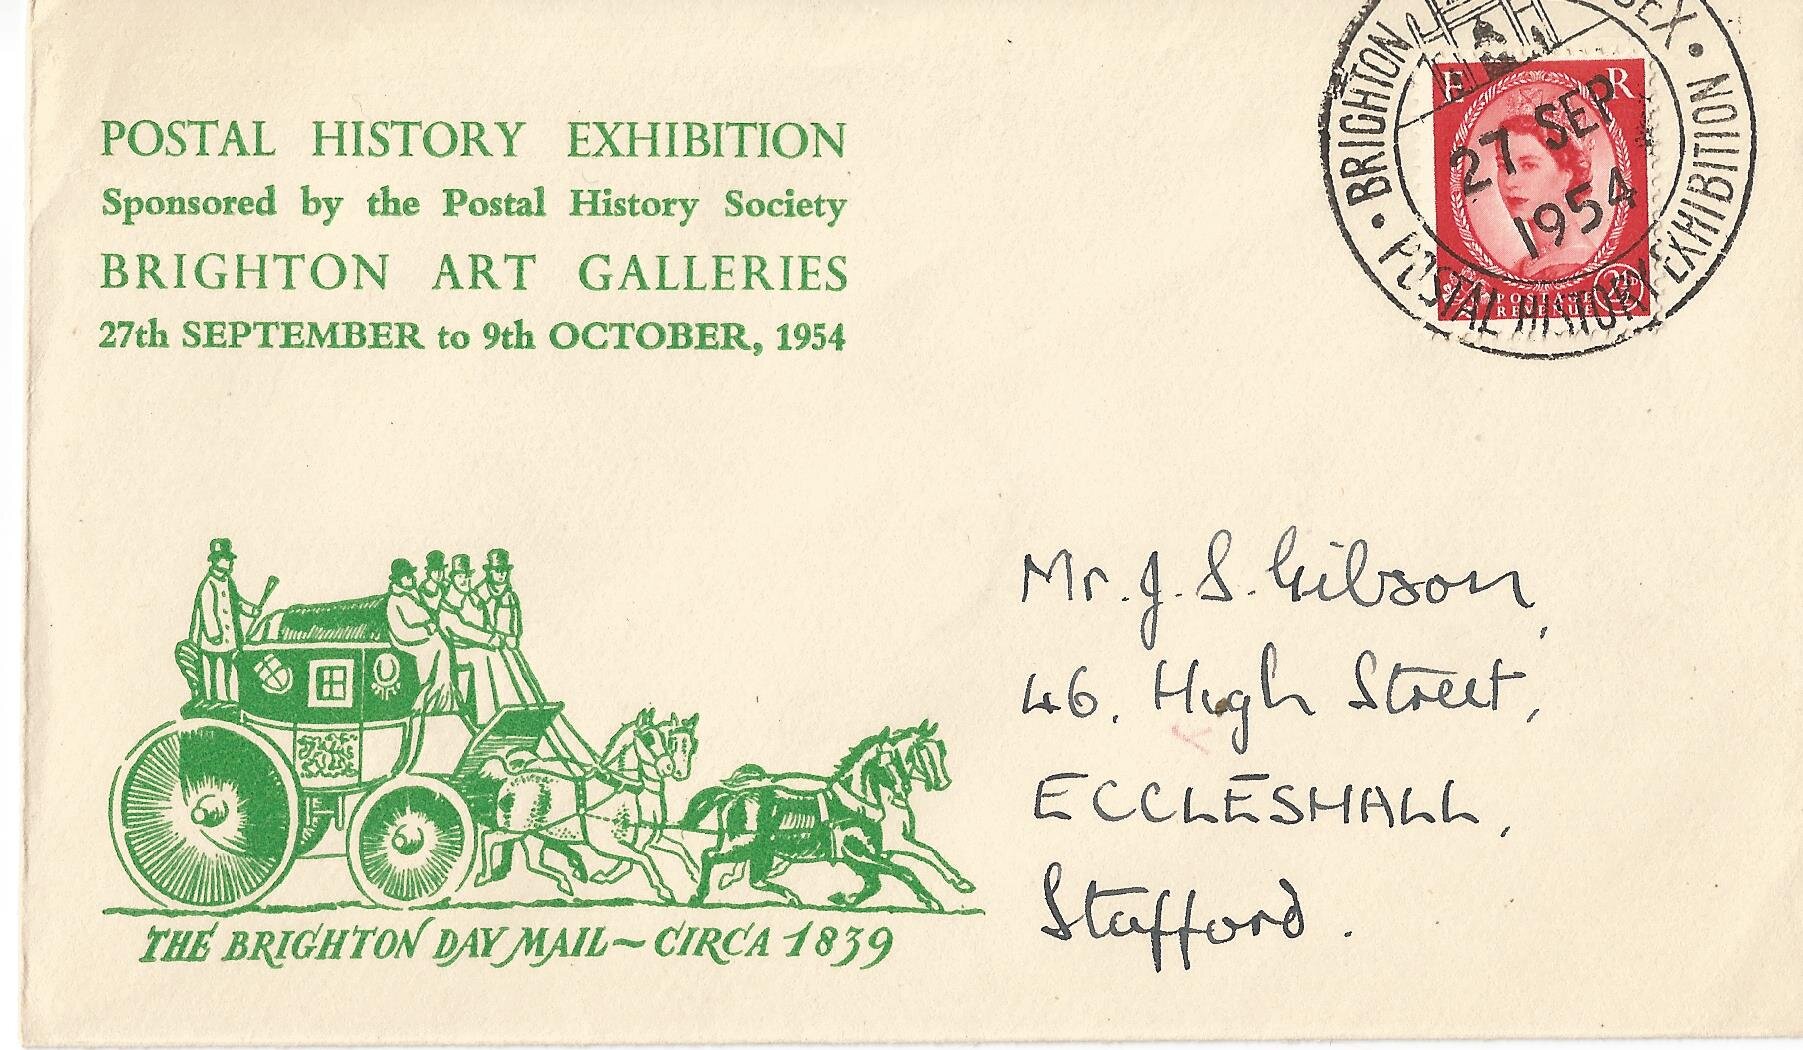 POSTAL HISTORY EXHIBITION
Sponsored by the Postal History Society
BRIGHTON ART GALLERIES
27th SEPTEMBER to 9th OCTOBER, 1954
BRIGHTON
POSTAL HISTORY EXHIBITION
27 SEP
1954
E R
POSTAGE
REVENUE
Mr. J. S. Gibson,
46, High Street,
ECCLESHALL,
Stafford.
THE BRIGHTON DAY MAIL ~ CIRCA 1839